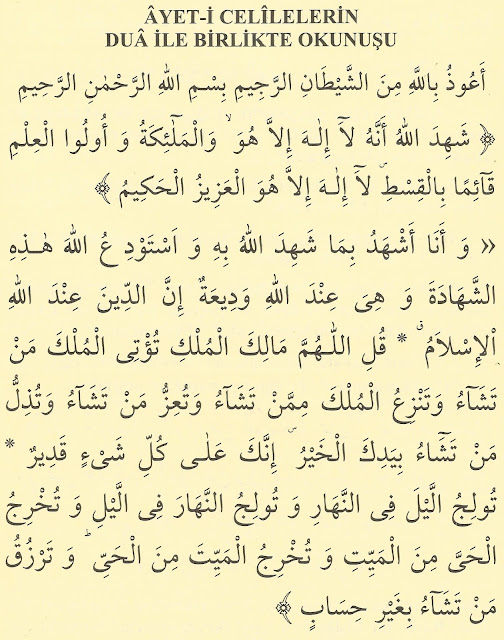 ÂYET-İ CELÎLELERİN
DUÂ İLE BİRLİKTE OKUNUŞU
أَعُوذُ بِاللَّهِ مِنَ الشَّيْطَانِ الرَّجِيمِ بِسْمِ اللهِ الرَّحْمٰنِ الرَّحِيمِ
﴿ شَهِدَ اللهُ أَنَّهُ لَآ إِلٰـهَ إِلاَّ هُوَ ۙ وَالْمَلٰٓئِكَةُ وَ أُولُوا الْعِلْمِ
قَآئِمًا بِالْقِسْطِ ۜ لَآ إِلٰـهَ إِلاَّ هُوَ الْعَزِيزُ الْحَكِيمُ ﴾
« وَ أَنَا أَشْهَدُ بِمَا شَهِدَ اللهُ بِهِ وَ اَسْتَوْدِ عُ اللهَ هٰـذِهِ
الشَّهَادَةَ وَ هِىَ عِنْدَ اللهِ وَدِيعَةٌ إِنَّ الدِّينَ عِنْدَ اللهِ
اْلإِسْلاَمُ ۗ * قُلِ اللّٰـهُمَّ مَالِكَ الْمُلْكِ تُؤْتِى الْمُلْكَ مَنْ
تَشَآءُ وَتَنْزِعُ الْمُلْكَ مِمَّنْ تَشَآءُ وَتُعِزُّ مَنْ تَشَآءُ وَتُذِلُّ
مَنْ تَشَٓاءُ بِيَدِكَ الْخَيْرُ ۜ إِنَّكَ عَلٰـى كُلِّ شَىْءٍ قَدِيرٌ *
تُولِجُ الَّيْلَ فِى النَّهَارِ وَ تُولِجُ النَّهَارَ فِى الَّيْلِ وَ تُخْرِجُ
الْحَىَّ مِنَ الْمَيِّتِ وَ تُخْرِجُ الْمَيِّتَ مِنَ الْحَىِّ ۘ وَ تَرْزُقُ
مَنْ تَشَآءُ بِغَيْرِ حِسَابٍ ﴾